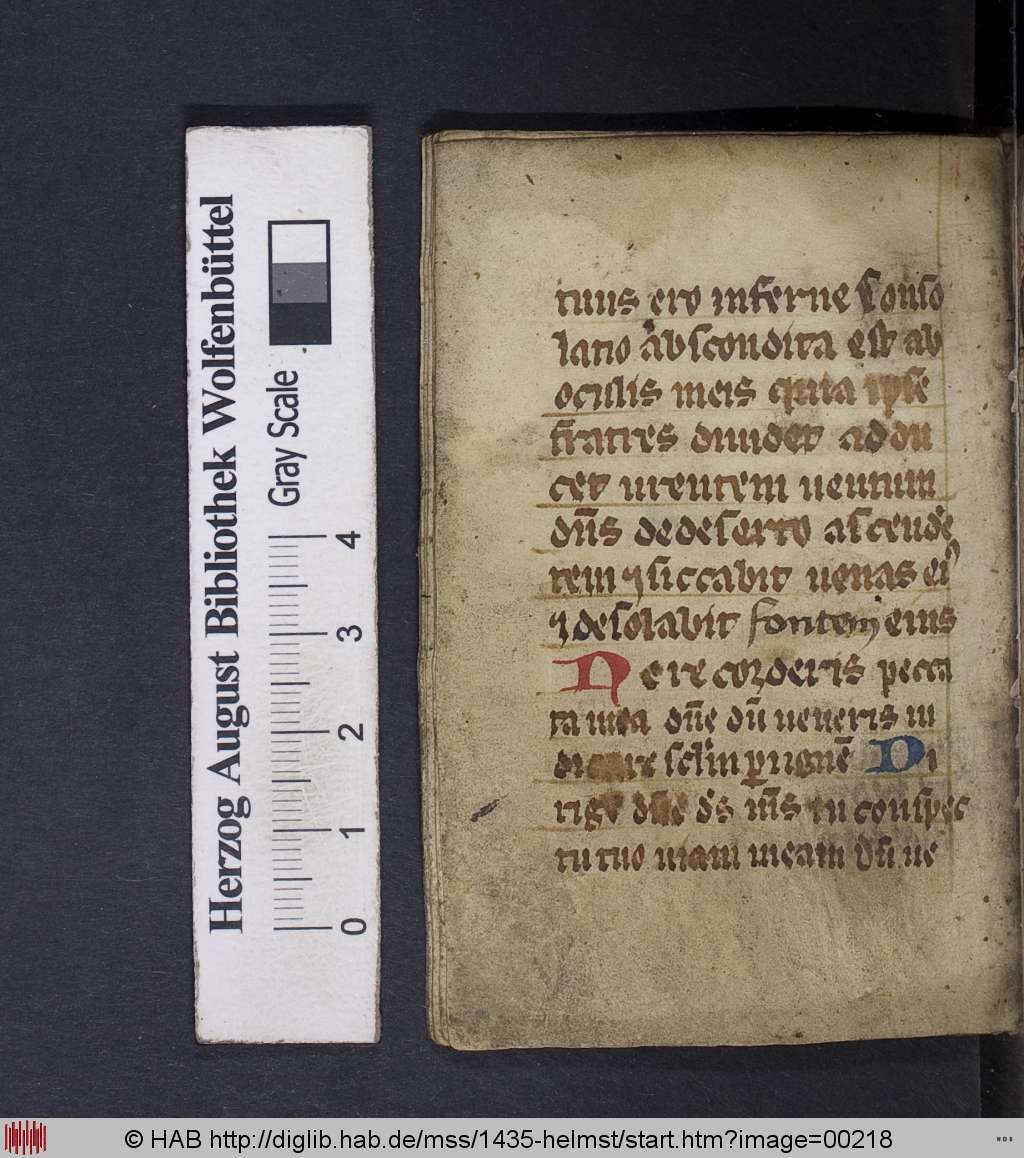 Herzog August Bibliothek Wolfenbüttel
Gray Scale
0 1 2 3 4
tuus ero inferne Conso
latio abscondita est ab
oculis meis quia ipse
fratres diuidet addu
cet urentem uentum
dn̄s de deserto ascendē
tem ⁊ siccabit uenas ei
⁊ desolabit fontem eius
Ne recorderis pecca
ta mea dn̄e dū ueneris iu
dicare sclm̄ p ignē Di
rige dn̄e ds̄ m̄s in conspec
tu tuo uiam meam Dū ue
© HAB http://diglib.hab.de/mss/1435-helmst/start.htm?image=00218
HAB